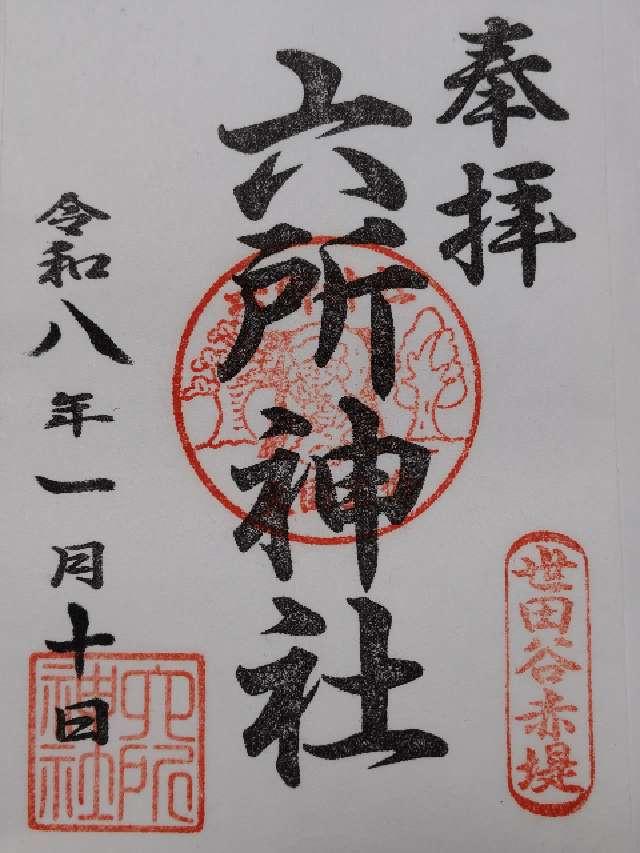 奉拝
六所神社
世田谷赤堤
令和八年一月十日
六所
神社